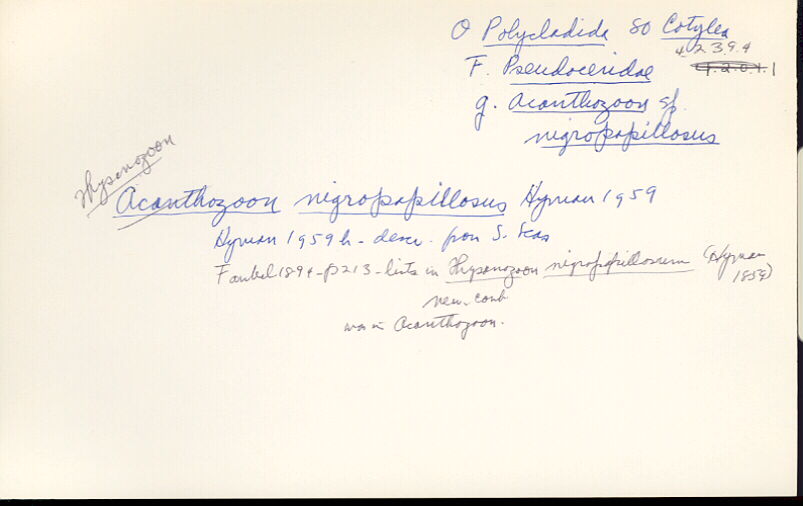 O Polycladida SO Cotylea
4.2.3.9.4
F. Pseudoceridae 4.2.0.1.1
g. Acanthozoon sp.
nigropapillosus
Thysanozoon
Acanthozoon nigropapillosus Hyman 1959
Hyman 1959h - descr. from S. Seas
Faubel 1894 - p213 - lists in Thysanozoon nigropapillosum (Hyman
1859)
new. comb
was in Acanthozoon.